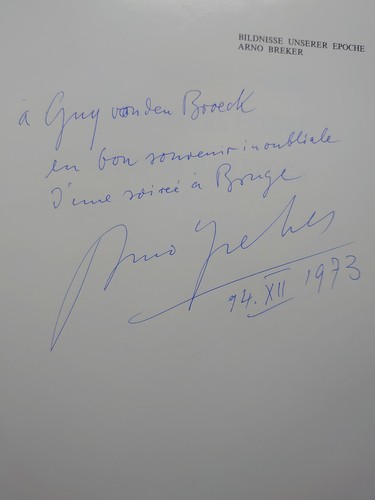 BILDNISSE UNSERER EPOCHE
ARNO BREKER
à Guy vanden Broeck
en bon souvenir inoubliable
d'une soirée à Bruge
Arno Breker
14. XII 1973